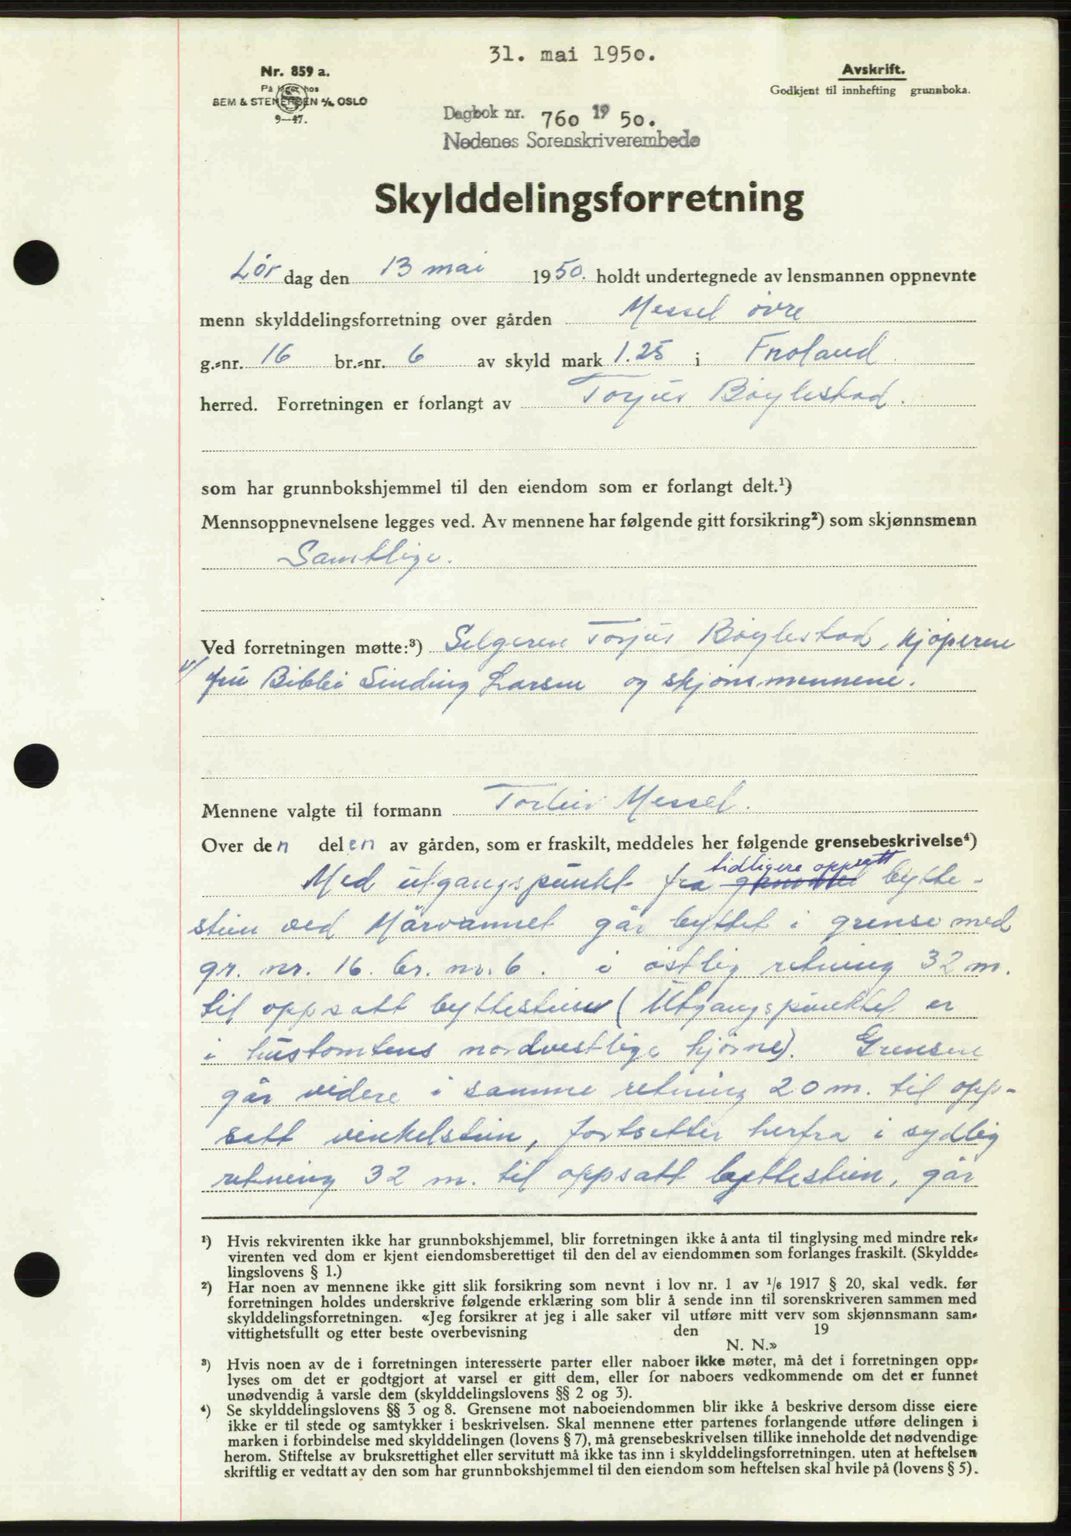 31. mai 1950.
Nr. 859 a.
På lager hos
BEM & STENERSEN A/S OSLO
9—47.
Avskrift.
Godkjent til innhefting grunnboka.
Dagbok nr. 760 19 50.
Nedenes Sorenskriverembede
Skylddelingsforretning
Lör dag den 13 mai 1950. holdt undertegnede av lensmannen oppnevnte
menn skylddelingsforretning over gården Messel övre
g.-nr. 16 br.-nr. 6 av skyld mark 1.25 i Froland
herred. Forretningen er forlangt av Torjus Böylestad.
som har grunnbokshjemmel til den eiendom som er forlangt delt.¹)
Mennsoppnevnelsene legges ved. Av mennene har følgende gitt forsikring²) som skjønnsmenn
Samtlige.
Ved forretningen møtte:³) Selgeren Torjus Böylestad, kjöperen
fru Bibbi Sinding Larsen og skjönsmennene.
Mennene valgte til formann Torleiv Messel.
Over den delen av gården, som er fraskilt, meddeles her følgende grensebeskrivelse⁴)
tidligere oppsatt
Med utgangspunkt fra bytte-
stein ved Mårvannet går byttet i grense med
gr. nr. 16. br. nr. 6. i östlig retning 32 m.
til oppsatt byttestein (Utgangspunktet er
i hustomtens nordvestlige hjörne). Grensen
går videre i samme retning 20 m. til opp-
satt vinkelstein, fortsetter herfra i sydlig
retning 32 m. til oppsatt byttestein, går
¹) Hvis rekvirenten ikke har grunnbokshjemmel, blir forretningen ikke å anta til tinglysing med mindre rek-
virenten ved dom er kjent eiendomsberettiget til den del av eiendommen som forlanges fraskilt. (Skyldde-
lingslovens § 1.)
²) Har noen av mennene ikke gitt slik forsikring som nevnt i lov nr. 1 av 1/6 1917 § 20, skal vedk. før
forretningen holdes underskrive følgende erklæring som blir å sende inn til sorenskriveren sammen med
skylddelingsforretningen. «Jeg forsikrer at jeg i alle saker vil utføre mitt verv som skjønnsmann sam-
vittighetsfullt og etter beste overbevisning den 19
N. N.»
³) Hvis noen av de i forretningen interesserte parter eller naboer ikke møter, må det i forretningen opp-
lyses om det er godtgjort at varsel er gitt dem, eller for naboers vedkommende om det er funnet
unødvendig å varsle dem (skylddelingslovens §§ 2 og 3).
⁴) Se skylddelingslovens §§ 3 og 8. Grensene mot naboeiendommen blir ikke å beskrive dersom disse eiere
ikke er til stede og samtykker i beskrivelsen. Skal mennene etter partenes forlangende utføre delingen i
marken i forbindelse med skylddelingen (lovens § 7), må grensebeskrivelsen tillike inneholde det nødvendige
herom. Stiftelse av bruksrettighet eller servitutt må ikke tas inn i skylddelingsforretningen, uten at heftelsen
skriftlig er vedtatt av den som har grunnbokshjemmel til den eiendom som heftelsen skal hvile på (lovens § 5).